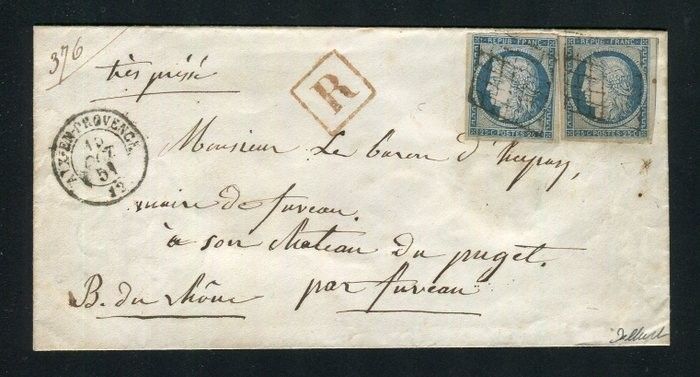 376
très pressé
R
REPUB FRANC
25 C POSTES 25 C
REPUB FRANC
25 C POSTES 25 C
AIX-EN-PROVENCE
51
12
Monsieur Le baron
maire de fuveau
à son château du puget.
B. du Rhône par fuveau